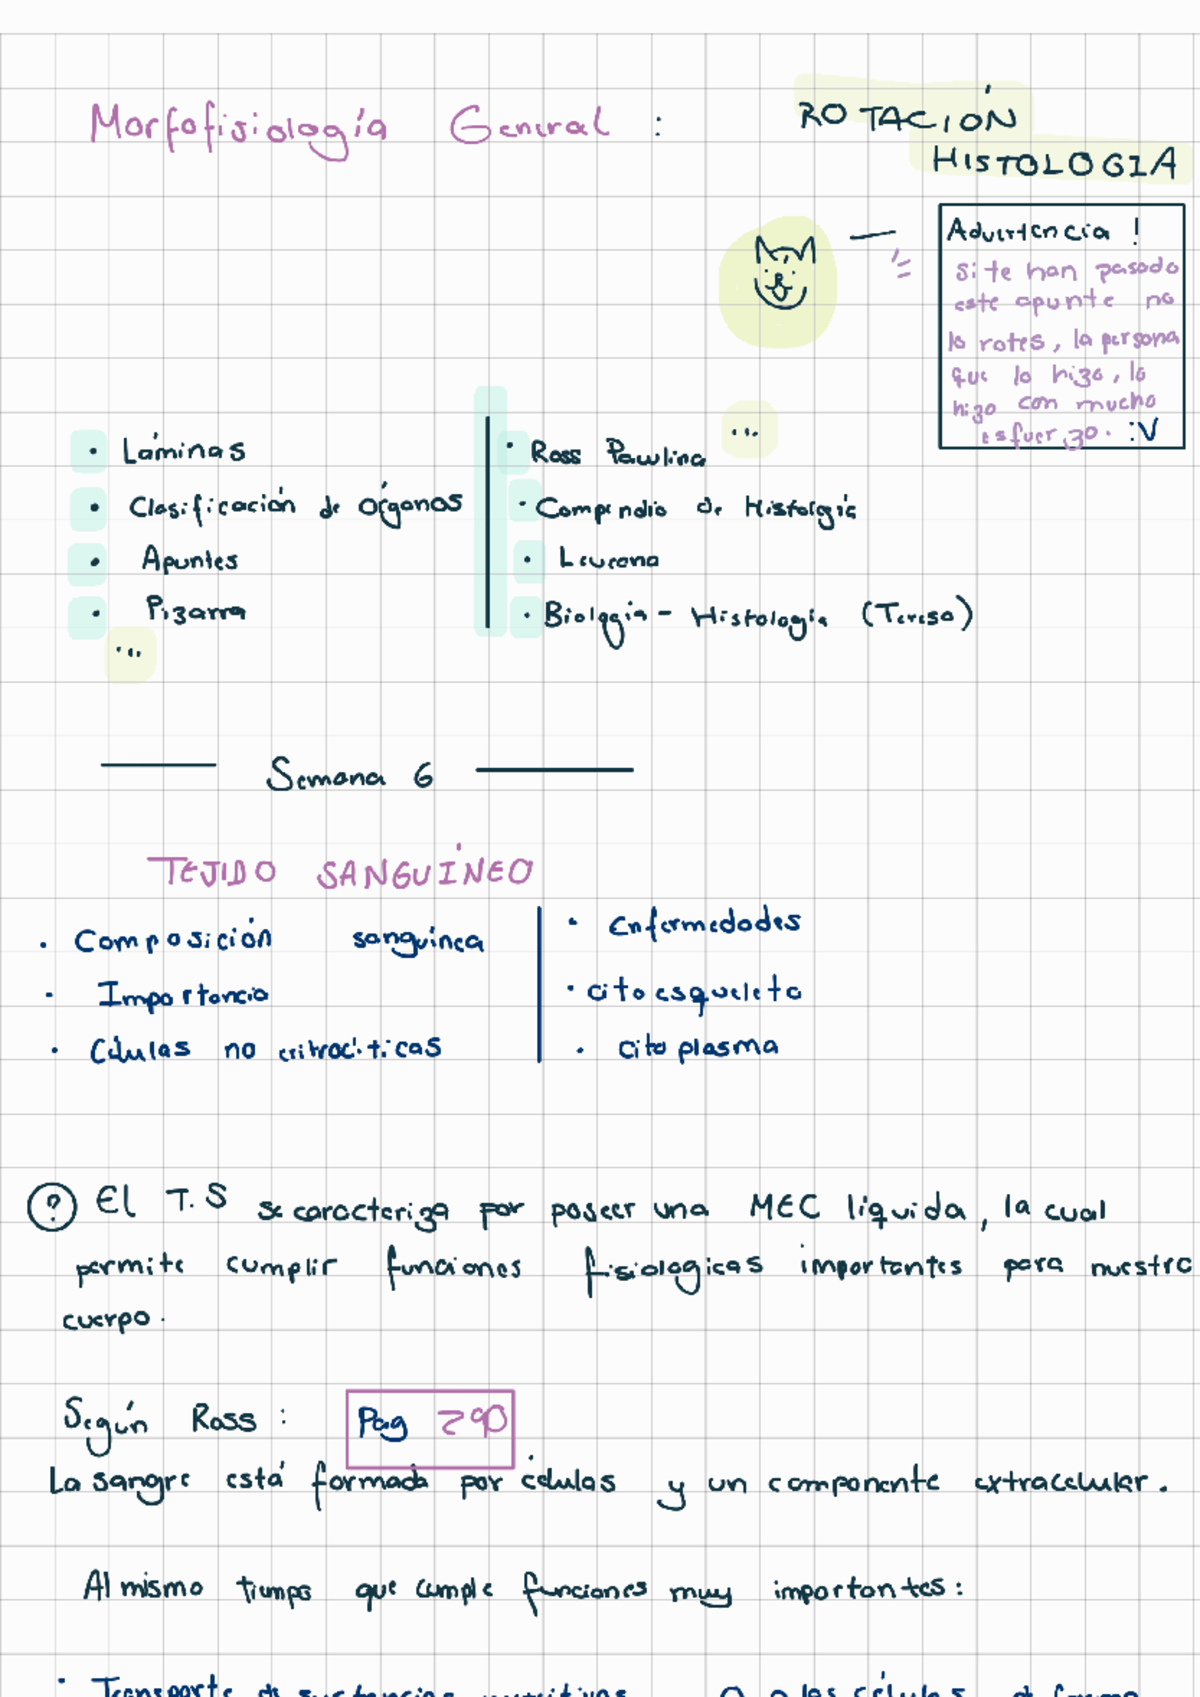 Morfofisiología General :
ROTACIÓN
HISTOLOGIA
Advertencia !
Si te han pasado
este apunte no
lo rotes, la persona
que lo hizo, lo
hizo con mucho
esfuerzo. :V
• Láminas
• Clasificación de órganos
• Apuntes
• Pizarra
...
• Ross Pawlina
...
• Compendio de Histolgía
•
• Biolggía - Histología (Teresa)
Semana 6
TEJIDO SANGUÍNEO
• Composición sanguínea
• Importancia
• Células no eritrocíticas
• Enfermedades
• citoesqueleto
• citoplasma
? El T.S se caracteriza por poseer una MEC líquida, la cual
permite cumplir funciones fisiologicas importantes para nuestro
cuerpo.
Según Ross : Pag 290
La sangre está formada por células y un componente extracelular.
Al mismo tiempo que cumple funciones muy importantes :
• Transporte de sustancias nutritivas O a las células de forma